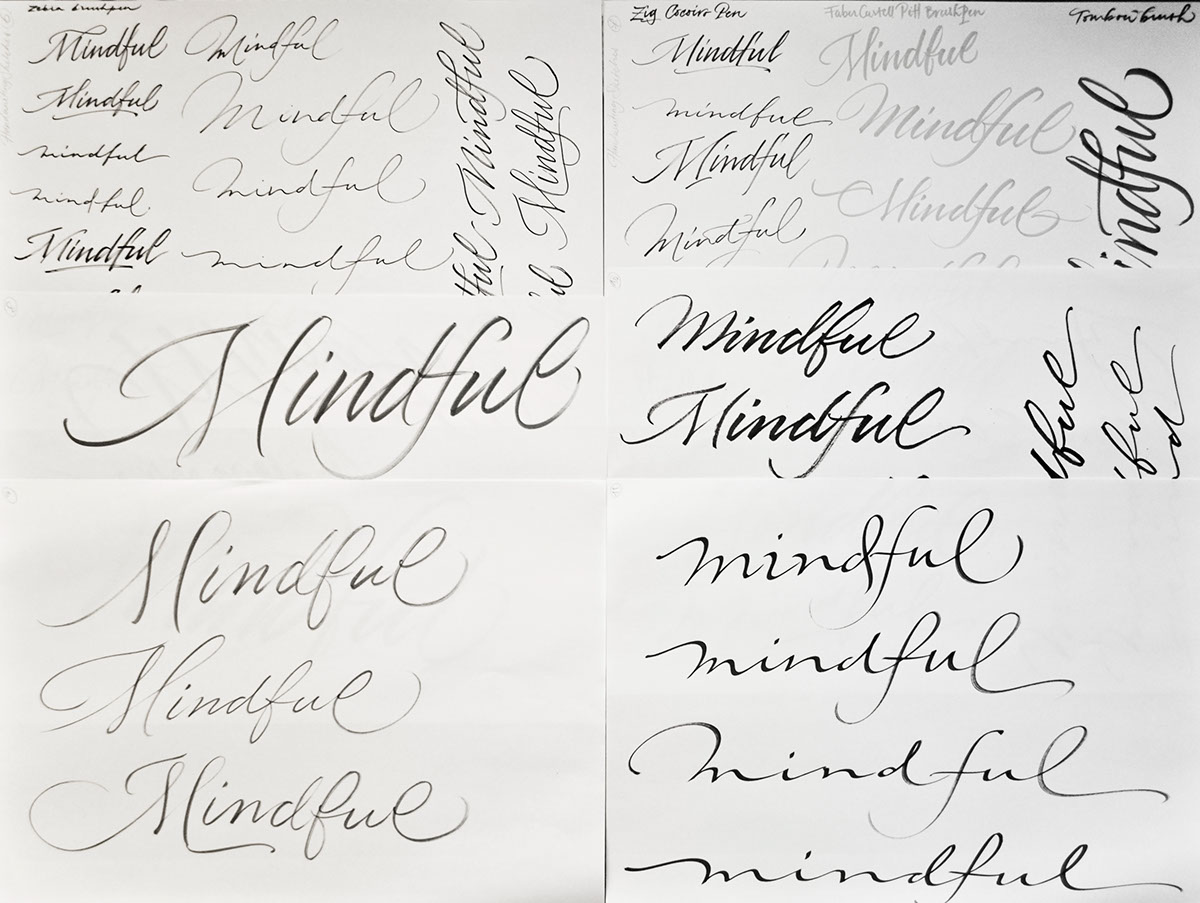 Zebra Brushpen
Mindful
Mindful
mindful
mindful.
Mindful
Mindful
Mindful
Mindful
mindful
Mindful
Mindful
ful
ul
Zig Cocoiro Pen
Mindful
mindful
Mindful
Mindful
FaberCastell Pitt BrushPen
Mindful
Mindful
Mindful
Tombow Brush
indful
Mindful
Mindful
Mindful
ful
ful
d
Mindful
Mindful
Mindful
mindful
mindful
mindful
mindful